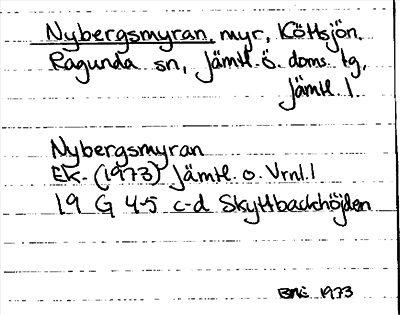 Nybergsmyran, myr, Köttsjön,
Ragunda sn, Jämtl. ö. doms. tg,
Jämtl. l.
Nybergsmyran
Ek. (1973) Jämtl. o. Vrnl. l
19 G 4-5 c-d Skyttbackhöjden
1973